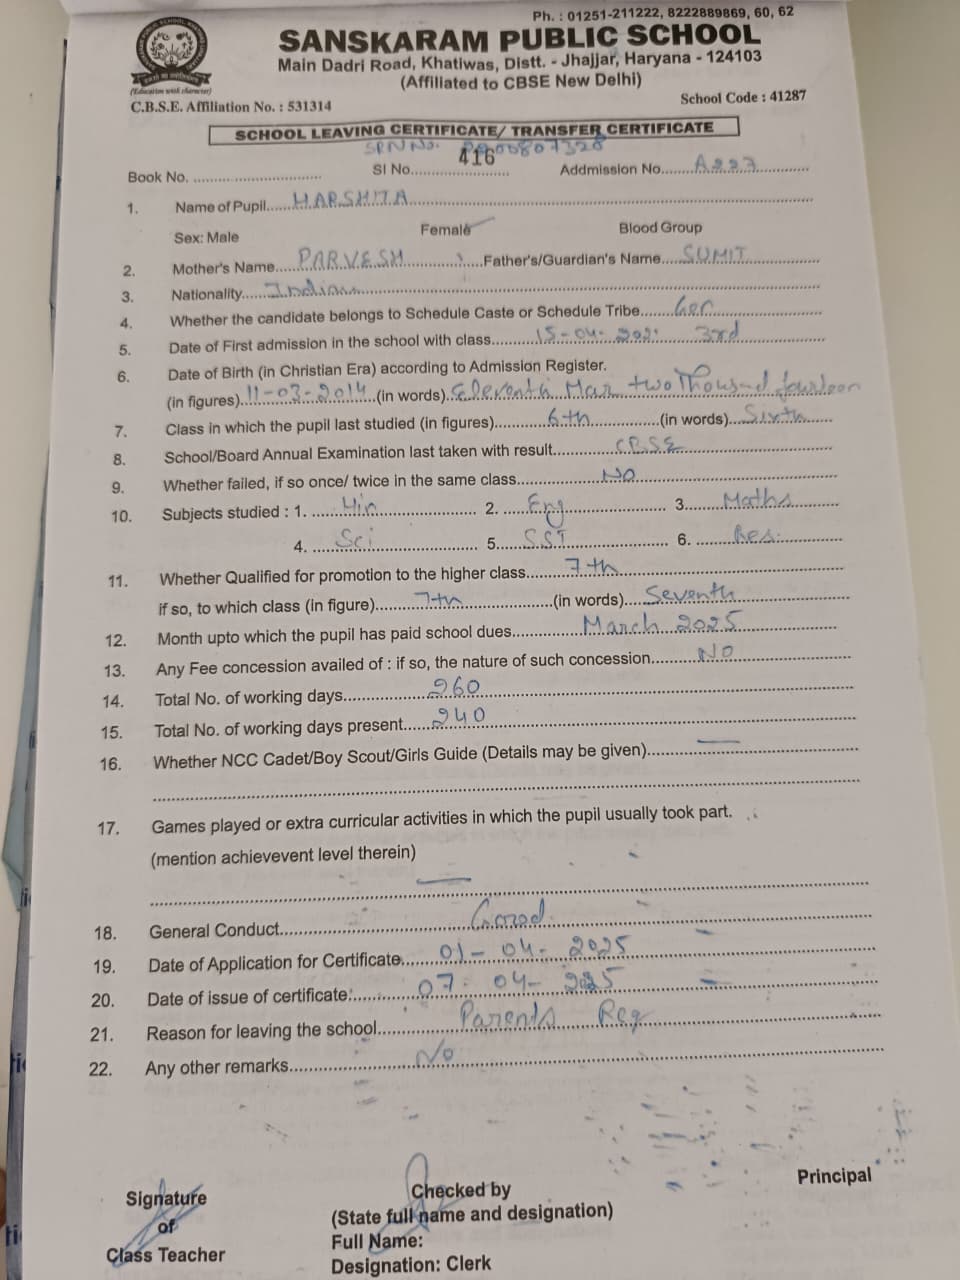 Ph. : 01251-211222, 8222889869, 60, 62
SANSKARAM PUBLIC SCHOOL
Main Dadri Road, Khatiwas, Distt. - Jhajjar, Haryana - 124103
(Affiliated to CBSE New Delhi)
(Education with character)
C.B.S.E. Affiliation No. : 531314
School Code : 41287
SCHOOL LEAVING CERTIFICATE/ TRANSFER CERTIFICATE
SRN No.
Book No. ........ Sl No. 416 Addmission No. A227
1. Name of Pupil HARSHITA
Sex: Male Female Blood Group
2. Mother's Name PARVESH Father's/Guardian's Name SUMIT
3. Nationality Indian
4. Whether the candidate belongs to Schedule Caste or Schedule Tribe Gen
5. Date of First admission in the school with class 15-04- 3rd
6. Date of Birth (in Christian Era) according to Admission Register.
(in figures) 11-03-2014 (in words) Eleventh Mar two Thousand fourteen
7. Class in which the pupil last studied (in figures) 6th (in words) Sixth
8. School/Board Annual Examination last taken with result CBSE
9. Whether failed, if so once/ twice in the same class NO
10. Subjects studied : 1. Hin 2. Eng 3. Maths
4. Sci 5. SST 6.
11. Whether Qualified for promotion to the higher class 7th
if so, to which class (in figure) 7th (in words) Seventh
12. Month upto which the pupil has paid school dues March 2025
13. Any Fee concession availed of : if so, the nature of such concession NO
14. Total No. of working days 260
15. Total No. of working days present 240
16. Whether NCC Cadet/Boy Scout/Girls Guide (Details may be given) —
17. Games played or extra curricular activities in which the pupil usually took part.
(mention achievevent level therein)
—
18. General Conduct Good
19. Date of Application for Certificate 01-04-2025
20. Date of issue of certificate: 07-04-2025
21. Reason for leaving the school Parents Req
22. Any other remarks No
Signature
of
Class Teacher
Checked by
(State full name and designation)
Full Name:
Designation: Clerk
Principal